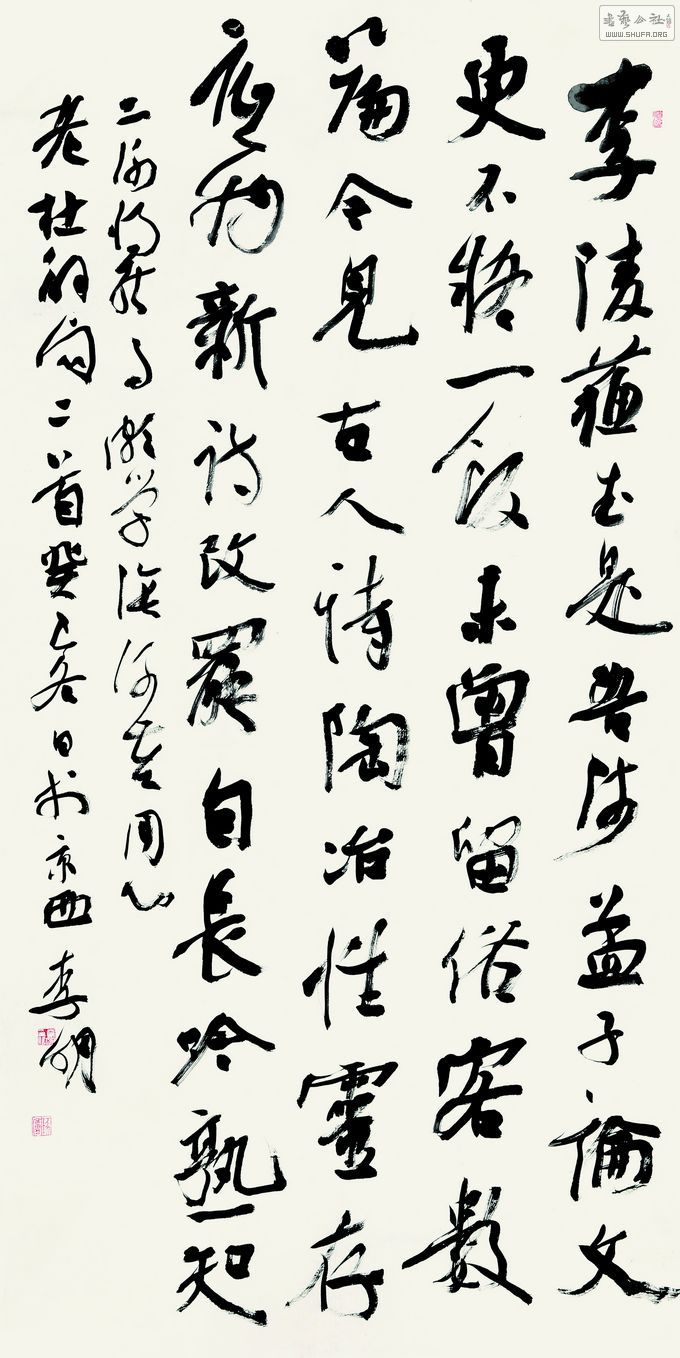 李陵蘇武是吾师孟子論文
更不疑一飯未曾留俗客數
篇今見古人詩陶冶性靈存
底物新詩改罷自長吟熟知
二谢将能事颇学陰何苦用心
老杜解闷二首癸巳冬日於京西李明
書藝公社
WWW.SHUFA.ORG